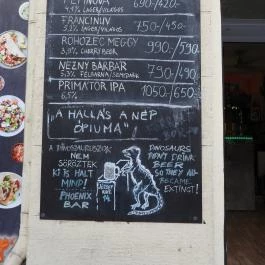 690/420.-
4,4% LAGER/VILÁGOS
FRANCIN UV
5,2% LAGER/VILÁGOS 750/450.-
ROHOZEC MEGGY 990/590
3,9% CHERRY BEER
NEZNY BARBAR 790/490
5,3% FÉLBARNA/SEMIDARK
PRIMATOR IPA 1050/650
6,5%
„A HALLÁS A NÉP
ÓPIUMA"
A DINOSZAURUSZOK
NEM
SÖRÖZTEK
KI IS HALT
MIND!
PHOENIX
BAR
DINOSAURS
DON'T DRINK
BEER
SO THEY ALL
BECAME
EXTINCT!